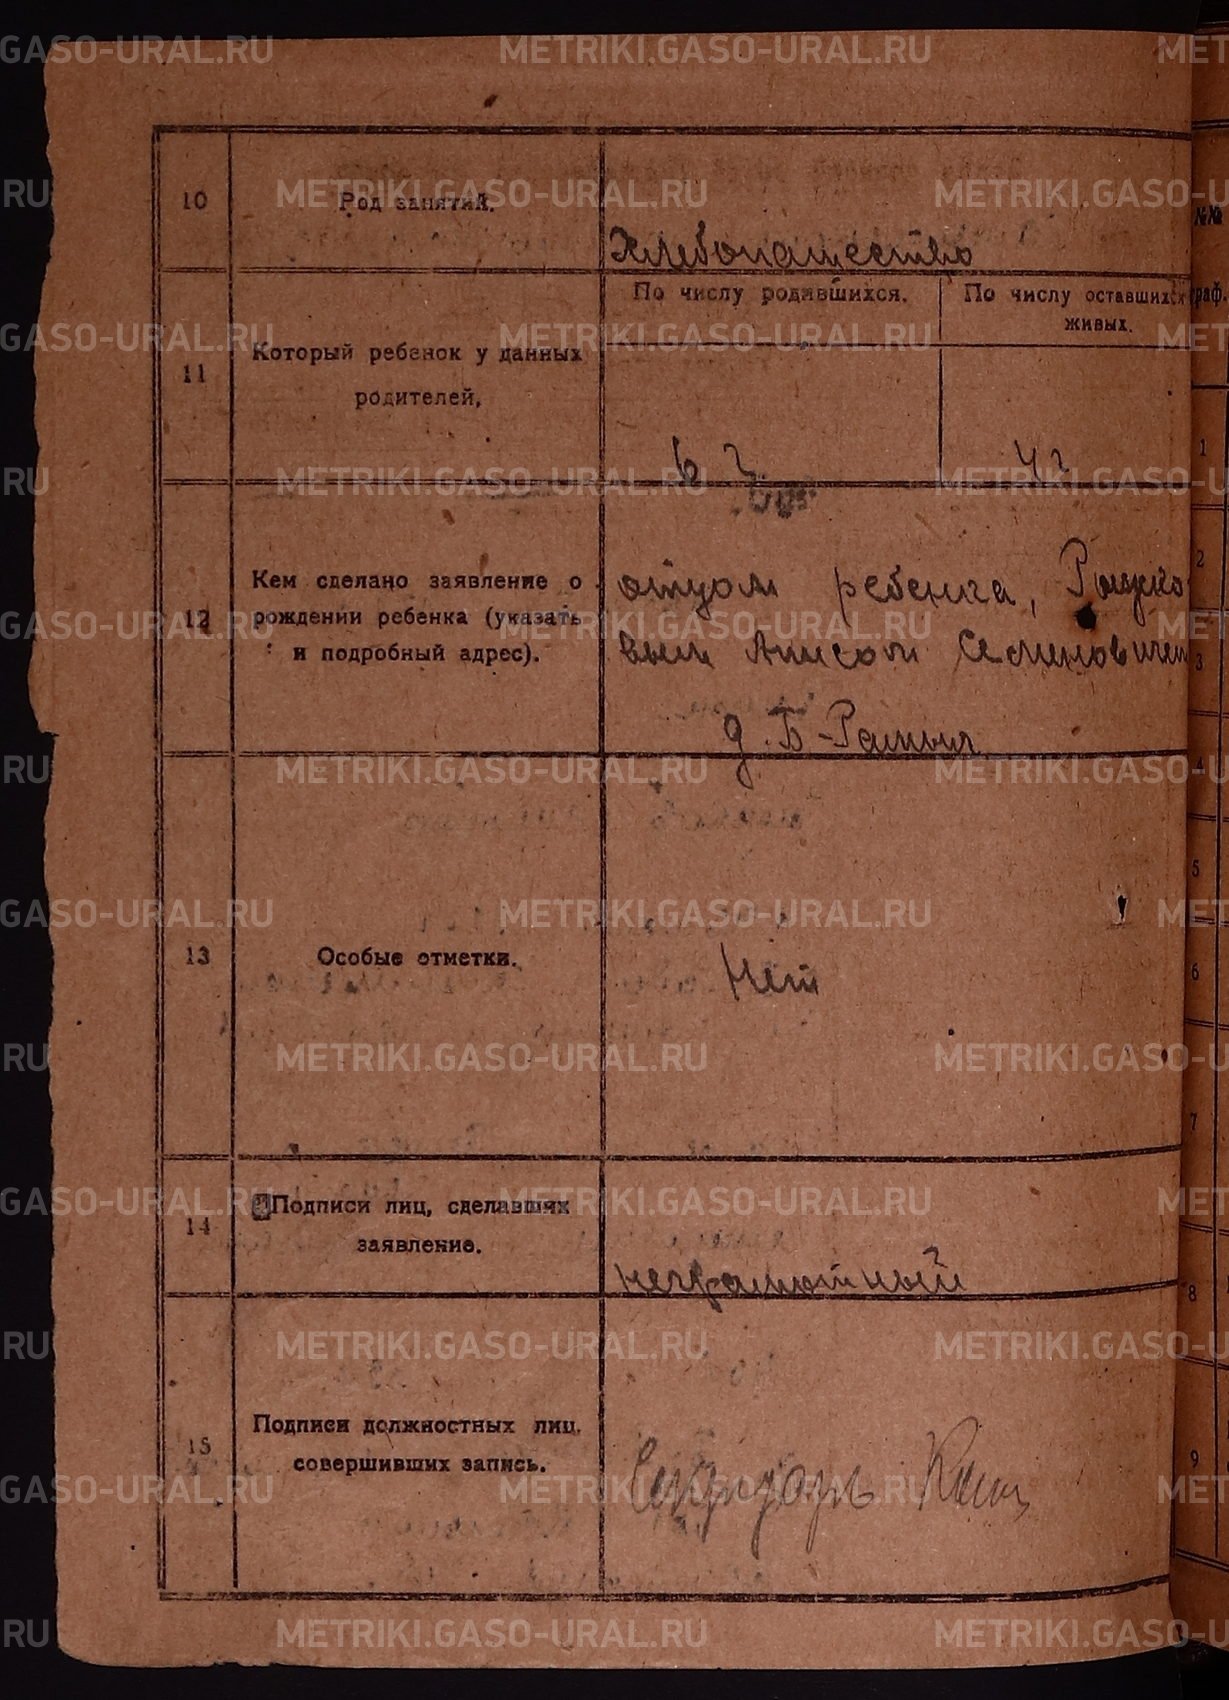 10
Род занятий.
Хлебопашество
11
Который ребенок у данных
родителей,
По числу родившихся.
По числу оставшихся
живых.
12
Кем сделано заявление о
рождении ребенка (указать
и подробный адрес).
отцом ребенка,
Семеновичем
д. Б-
13
Особые отметки.
Нет
14
Подписи лиц, сделавших
заявление.
неграмотный
15
Подписи должностных лиц,
совершивших запись.
№№
граф.
1
2
3
4
5
6
7
8
9
METRIKI.GASO-URAL.RU